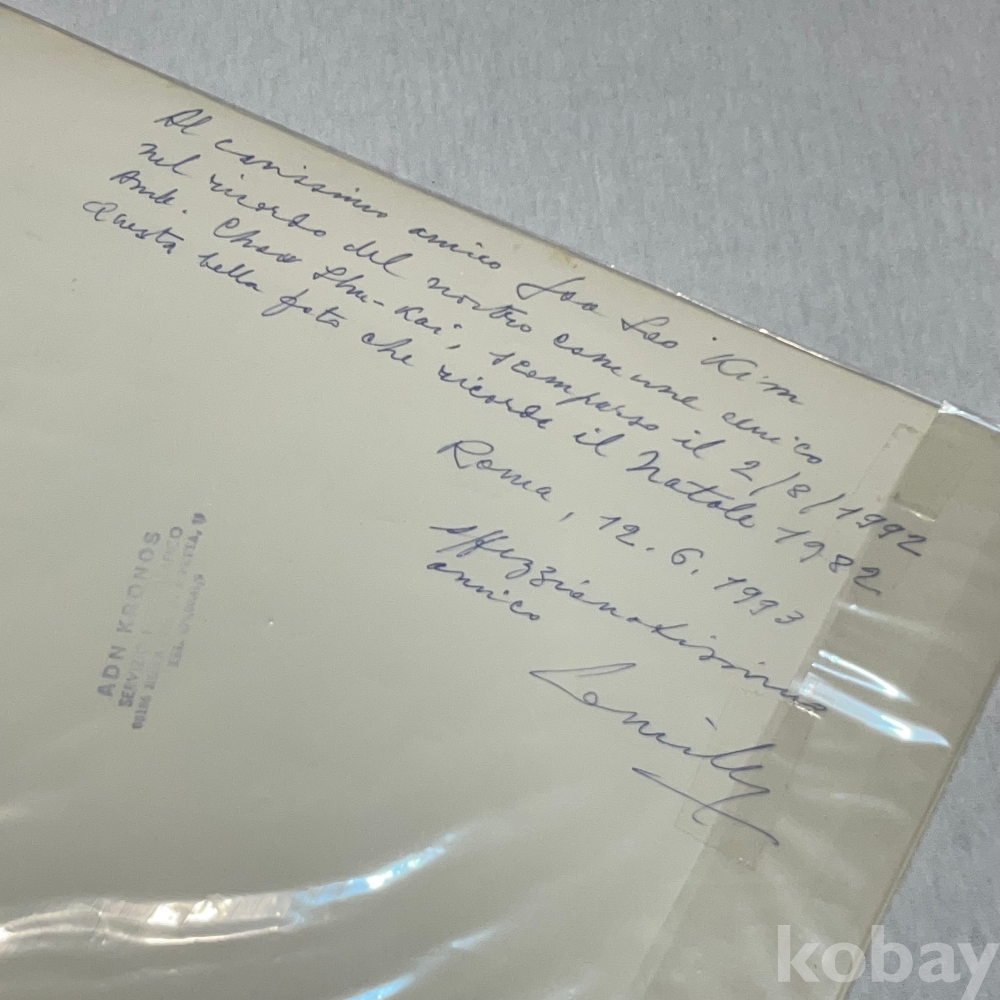 Al carissimo amico Soo Kim
nel ricordo del nostro comune amico
Amb. Chow Shu-Kai, scomparso il 2/8/1992
questa bella foto che ricorda il Natale 1982
Roma, 12.6.1993
affezzionatissimo
amico
ADN KRONOS
SERVIZIO
kobay